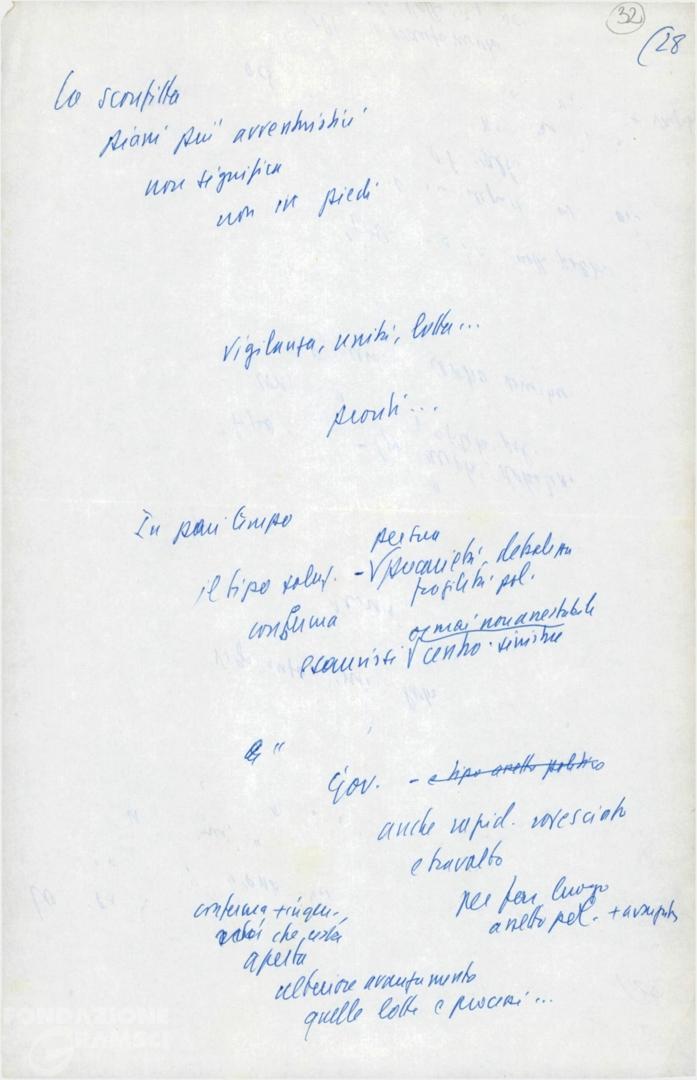 32
(28
La sconfitta
piani più avventuristici
non significa
non in piedi
Vigilanza, unità, lotta...
pronti...
In pari tempo
il tipo soluz. - precarietà, debolezza
fragilità pol.
conferma
ormai non arrestabile
esaurirsi centro-sinistra
Gov. - e tipo assetto politico
anche rapid. rovesciato
e travolto
per far luogo
assetto pol. + avanzato
conferma
che, resta
aperta
ulteriore avanzamento
quelle lotte e processi...
FONDAZIONE
GRAMSCI